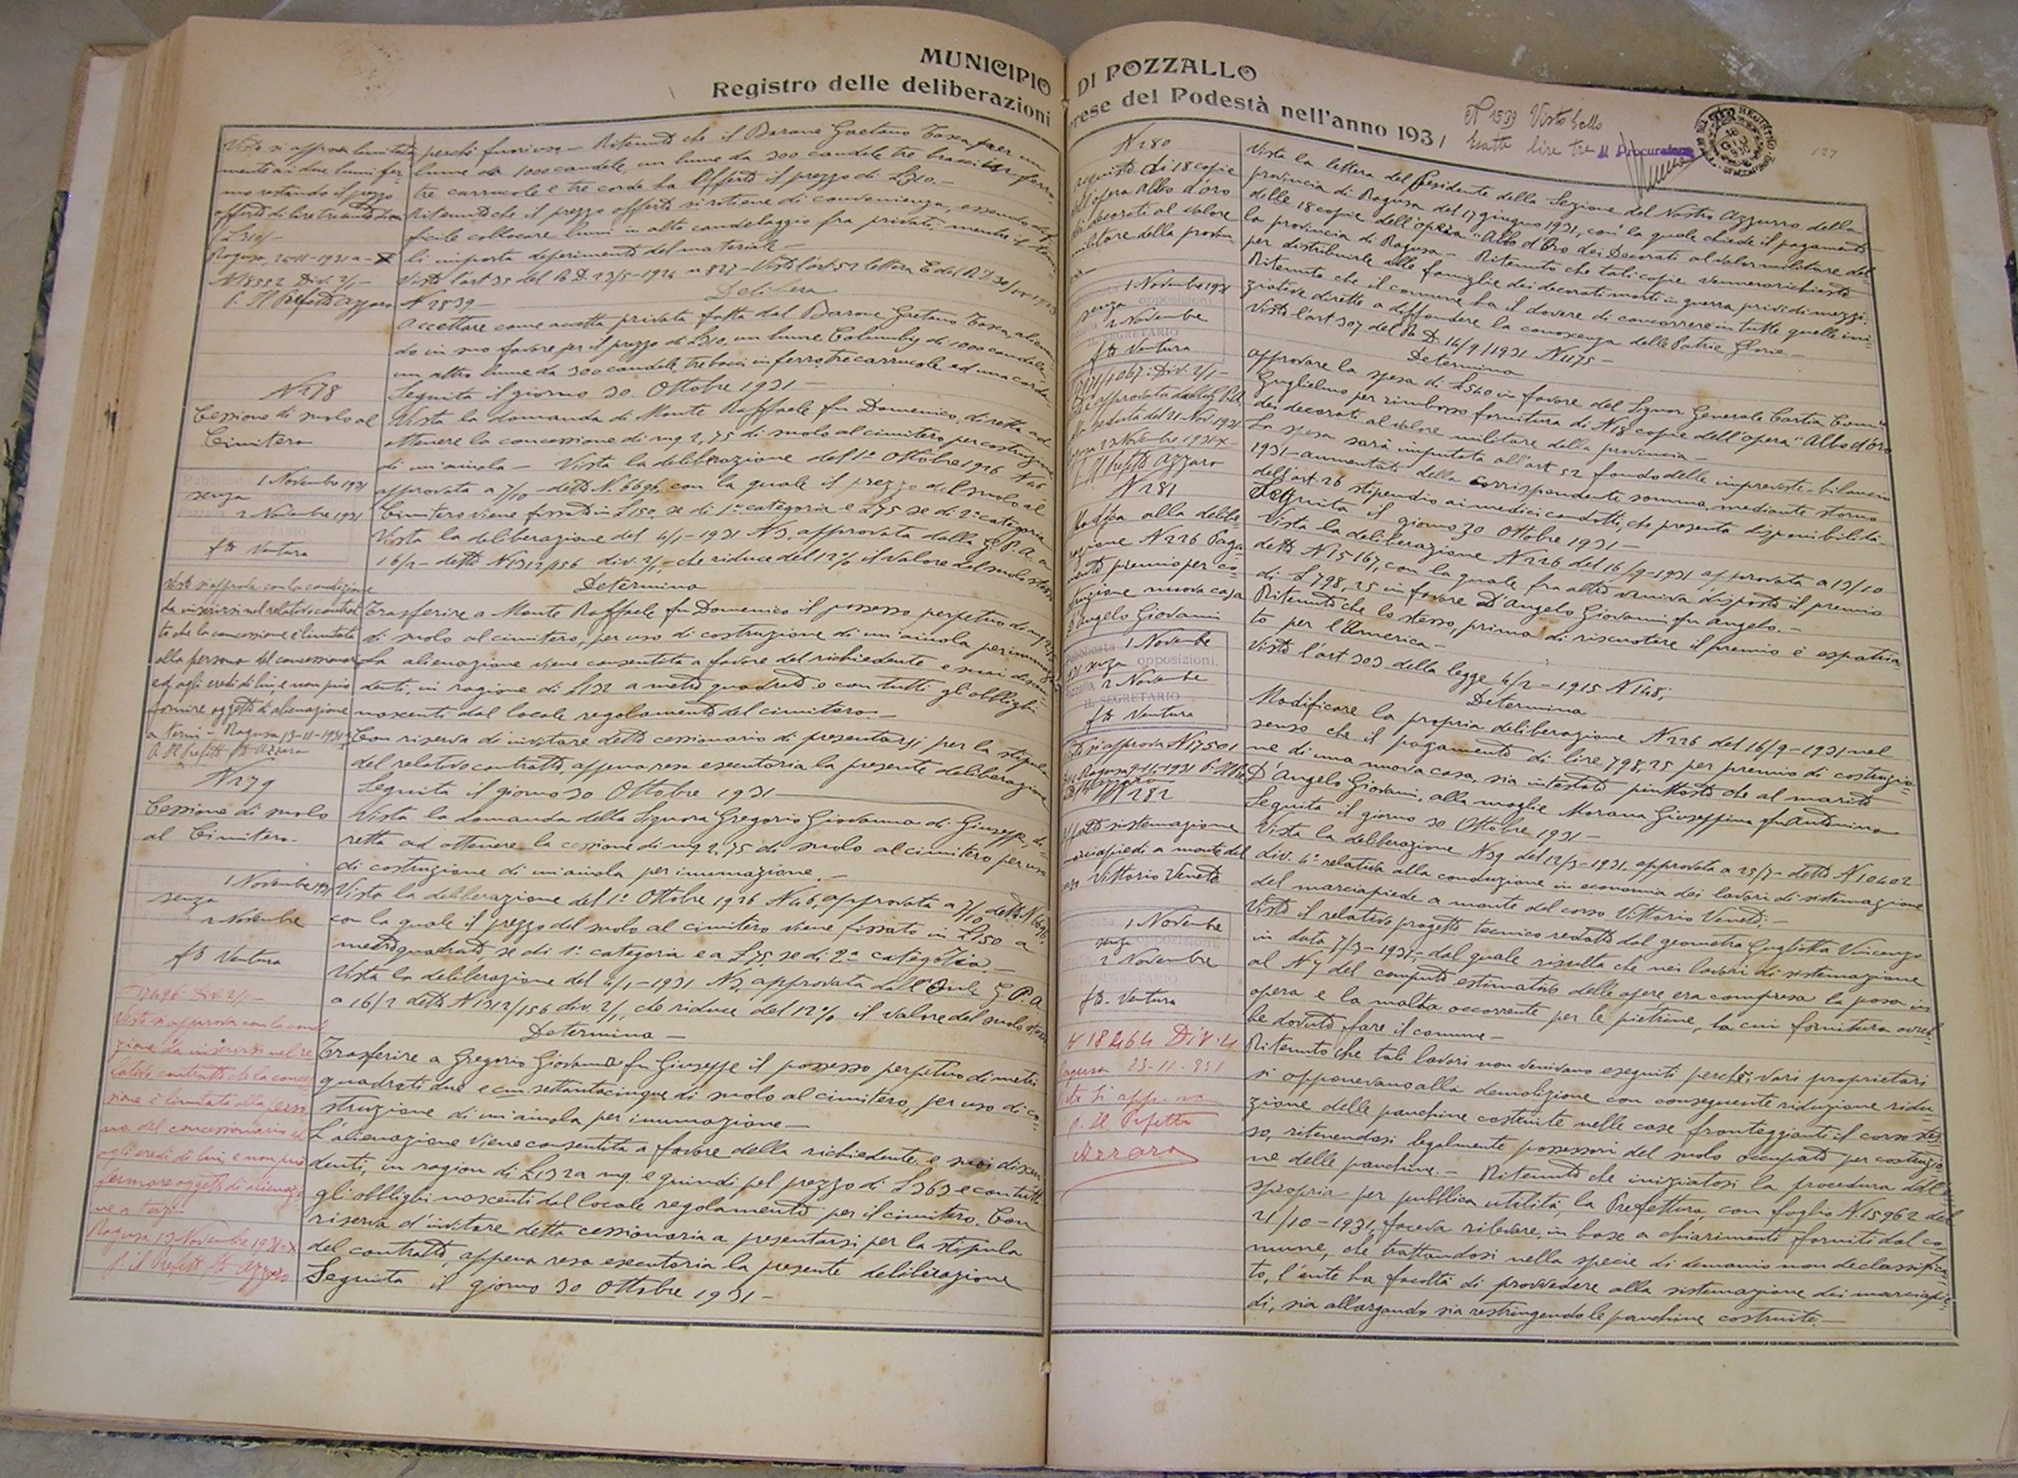 MUNICIPIO DI POZZALLO
Registro delle deliberazioni prese del Podestà nell'anno 1931
N 1539 Visto bollo
esatte lire tre Il Procuratore
127
Visto si approva limitata
mente ai due lumi fer
mo restando il prezzo
offerto di lire trecentodieci
(£310)-
Ragusa, 25-11-1931 a-X
N18552 Div. 2/1-
p. Il Prefetto Azzaro
perché furioso - Ritenuto che il Barone Gaetano Tasca per un
lume da 1000 candele, un lume da 300 candele tre bracci in ferro
tre carrucole e tre corde ha offerto il prezzo di £310.-
Ritenuto che il prezzo offerto si ritiene di convenienza, essendo dif
ficile collocare lumi in alto candelaggio fra privati, mentre il tener
li importa deperimento del materiale-
Visto l'art 35 del R D. 23/5-1924 n 827-Visto l'art 52 lettera E del R. D. 30/12-1923
N 2839-
Delibera
Accettare come accetta privata fatta dal Barone Gaetano Tasca, alienan
do in suo favore per il prezzo di £310, un lume Columbly di 1000 candele
un altro lume da 300 candele tre bracci in ferro, tre carrucole ed una corda.
Seguita il giorno 30 Ottobre 1931-
N 278
Cessione di suolo al
Cimitero
1 Novembre 1931
senza
2 Novembre 1931
fto Ventura
Visto si approva con la condizione
da inserirsi nel relativo contrat
to che la concessione è limitata
alla persona del concessionario
ed agli eredi di lui, e non può
formare oggetto di alienazione
a terzi - Ragusa 13-11-1931
p. Il Prefetto fto Azzaro
Vista la domanda di Monte Raffaele fu Domenico, diretta ad
ottenere la concessione di mq 2,75 di suolo al cimitero per costruzione
di un'aiuola - Vista la deliberazione del 1° Ottobre 1926 N 46
approvata a 7/10 detto N. 6696, con la quale il prezzo del suolo al
Cimitero viene fissato in £150. se di 1a categoria e £75 se di 2a categoria
Vista la deliberazione del 4/1-1931 N3, approvata dalla G. P. A. a
16/2- detto N1312/156 div. 2/1-che riduce del 12% il valore del suolo stesso
Determina
Trasferire a Monte Raffaele fu Domenico il possesso perpetuo di mq 2,75
di suolo al cimitero, per uso di costruzione di un'aiuola per inumaz
La alienazione viene consentita a favore del richiedente e suoi discen
denti, in ragione di £132 a metro quadrato e con tutti gli obblighi
nascenti dal locale regolamento del cimitero.-
Con riserva di invitare detto cessionario di presentarsi per la stipula
del relativo contratto, appena resa esecutoria la presente deliberazione
Seguita il giorno 30 Ottobre 1931
N 279
Cessione di suolo
al Cimitero.
1 Novembre 1931
senza
2 Novembre
fto Ventura
N 17496 Div 2/1-
Visto si approva con la condi
zione da inserirsi nel re
lativo contratto che la conces
sione è limitata alla perso
na del concessionario ed
agli eredi di lui, e non può
formare oggetto di alienazio
ne a terzi-
Ragusa 13 Novembre 1931-X
p. il Prefetto fto Azzaro
Vista la domanda della Signora Gregorio Giovanna di Giuseppe, di
retta ad ottenere la cessione di mq 2,75 di suolo al cimitero per uso
di costruzione di un'aiuola per inumazione.-
Vista la deliberazione del 1° Ottobre 1926 N 46, approvata a 7/10 detto N. 6696,
con la quale il prezzo del suolo al cimitero viene fissato in £150 a
metro quadrato, se di 1a categoria e a £75, se di 2a categoria.-
Vista la deliberazione del 4/1-1931 N3, approvata dall'On.le G. P. A.
a 16/2 detto N1312/156 div. 2/1, che riduce del 12% il valore del suolo stesso
Determina -
Trasferire a Gregorio Giovanna fu Giuseppe il possesso perpetuo di metri
quadrati due e cm. settantacinque di suolo al cimitero, per uso di co-
struzione di un'aiuola per inumazione-
L'alienazione viene consentita a favore della richiedente, e suoi discen
denti, in ragion di £132 a mq. e quindi pel prezzo di £363 e con tutti
gli obblighi nascenti dal locale regolamento per il cimitero. Con
riserva d'invitare detta cessionaria a presentarsi per la stipula
del contratto, appena resa esecutoria la presente deliberazione
Seguita il giorno 30 Ottobre 1931-
N 280
Acquisto di 18 copie
dell'opera Albo d'oro
dei decorati al valore
militare della provin
1 Novembre 1931
senza opposizioni.
2 Novembre
IL SEGRETARIO
fto Ventura
seduta del 21 Nov. 1931
p Il Prefetto Azzaro
Vista la lettera del Presidente della Sezione del Nastro Azzurro della
provincia di Ragusa del 17 giugno 1931, con la quale chiede il pagamento
delle 18 copie dell'opera "Albo d'Oro dei Decorati al valor militare del
la provincia di Ragusa - Ritenuto che tali copie vennero richieste
per distribuirle alle famiglie dei decorati morti in guerra, privi di mezzi.
Ritenuto che il comune ha il dovere di concorrere in tutte quelle ini-
ziative dirette a diffondere la conoscenza delle Patrie Glorie-
Visto l'art 307 del R. D. 14/9/1931 N 1175-
Determina
approvare la spesa di £540 in favore del Signor Generale Cartia Comm
Guglielmo per rimborso fornitura di N18 copie dell'opera "Albo d'Oro
dei decorati al valore militare della provincia-
La spesa sarà imputata all'art 52 fondo delle impreviste-bilancio
1931-aumentato della corrispondente somma, mediante storno
dell'art. 26 stipendio ai medici condotti, che presenta disponibilità-
Seguita il giorno 30 Ottobre 1931-
N 281
Modifica alla delibe-
razione N 226 Paga-
mento premio per co-
struzione nuova casa
D'Angelo Giovanni
1 Novembre
senza opposizioni.
2 Novembre
IL SEGRETARIO
fto Ventura
Visto si approva N17501
Ragusa 9-11-1931 p. Il Prefetto
Vista la deliberazione N 226 del 16/9-1931 approvata a 13/10
detto N15167, con la quale fra altro veniva disposto il premio
di £798,25 in favore D'Angelo Giovanni fu Angelo.-
Ritenuto che lo stesso, prima di riscuotere il premio è espatria
to per l'America-
Visto l'art 303 della legge 4/2-1915 N 148;
Determina
Modificare la propria deliberazione N226 del 16/9-1931 nel
senso che il pagamento di lire 798,25 per premio di costruzio-
ne di una nuova casa, sia intestato piuttosto che al marito
D'Angelo Giovanni, alla moglie Morana Giuseppina fu Antonino
Seguita il giorno 30 Ottobre 1931-
N 282
sistemazione
marciapiedi a monte del
corso Vittorio Veneto
1 Novembre
senza opposizioni.
2 Novembre
fto. Ventura
N 18464 Div. 4
Ragusa 23-11-931
Visto si approva
p. Il Prefetto
Azzaro
Vista la deliberazione N39 del 12/3-1931 approvata a 23/7-detto N10402
div. 4a relativa alla conduzione in economia dei lavori di sistemazione
del marciapiede a monte del corso Vittorio Veneto;-
Visto il relativo progetto tecnico redatto dal geometra Gugliotta Vincenzo
in data 7/3-1931,-dal quale risulta che nei lavori di sistemazione
al N 7 del computo estimativo delle opere era compresa la posa in
opera e la malta occorrente per le pietrine, la cui fornitura avreb
be dovuto fare il comune-
Ritenuto che tali lavori non venivano eseguiti perchè i vari proprietari
si opponevano alla demolizione con conseguente riduzione ridu-
zione delle panchine costruite nelle case fronteggianti il corso stes
so, ritenendosi legalmente possessori del suolo occupato per costruzio-
ne delle panchine.- Ritenuto che iniziatosi la procedura dell'e
sproprio per pubblica utilità, la Prefettura, con foglio N.15962 del
21/10-1931, faceva rilevare, in base a chiarimenti forniti dal co-
mune, che trattandosi nella specie di demanio non declassifica-
to, l'ente ha facoltà di provvedere alla sistemazione dei marciapie-
di, sia allargando, sia restringendo le panchine costruite.-